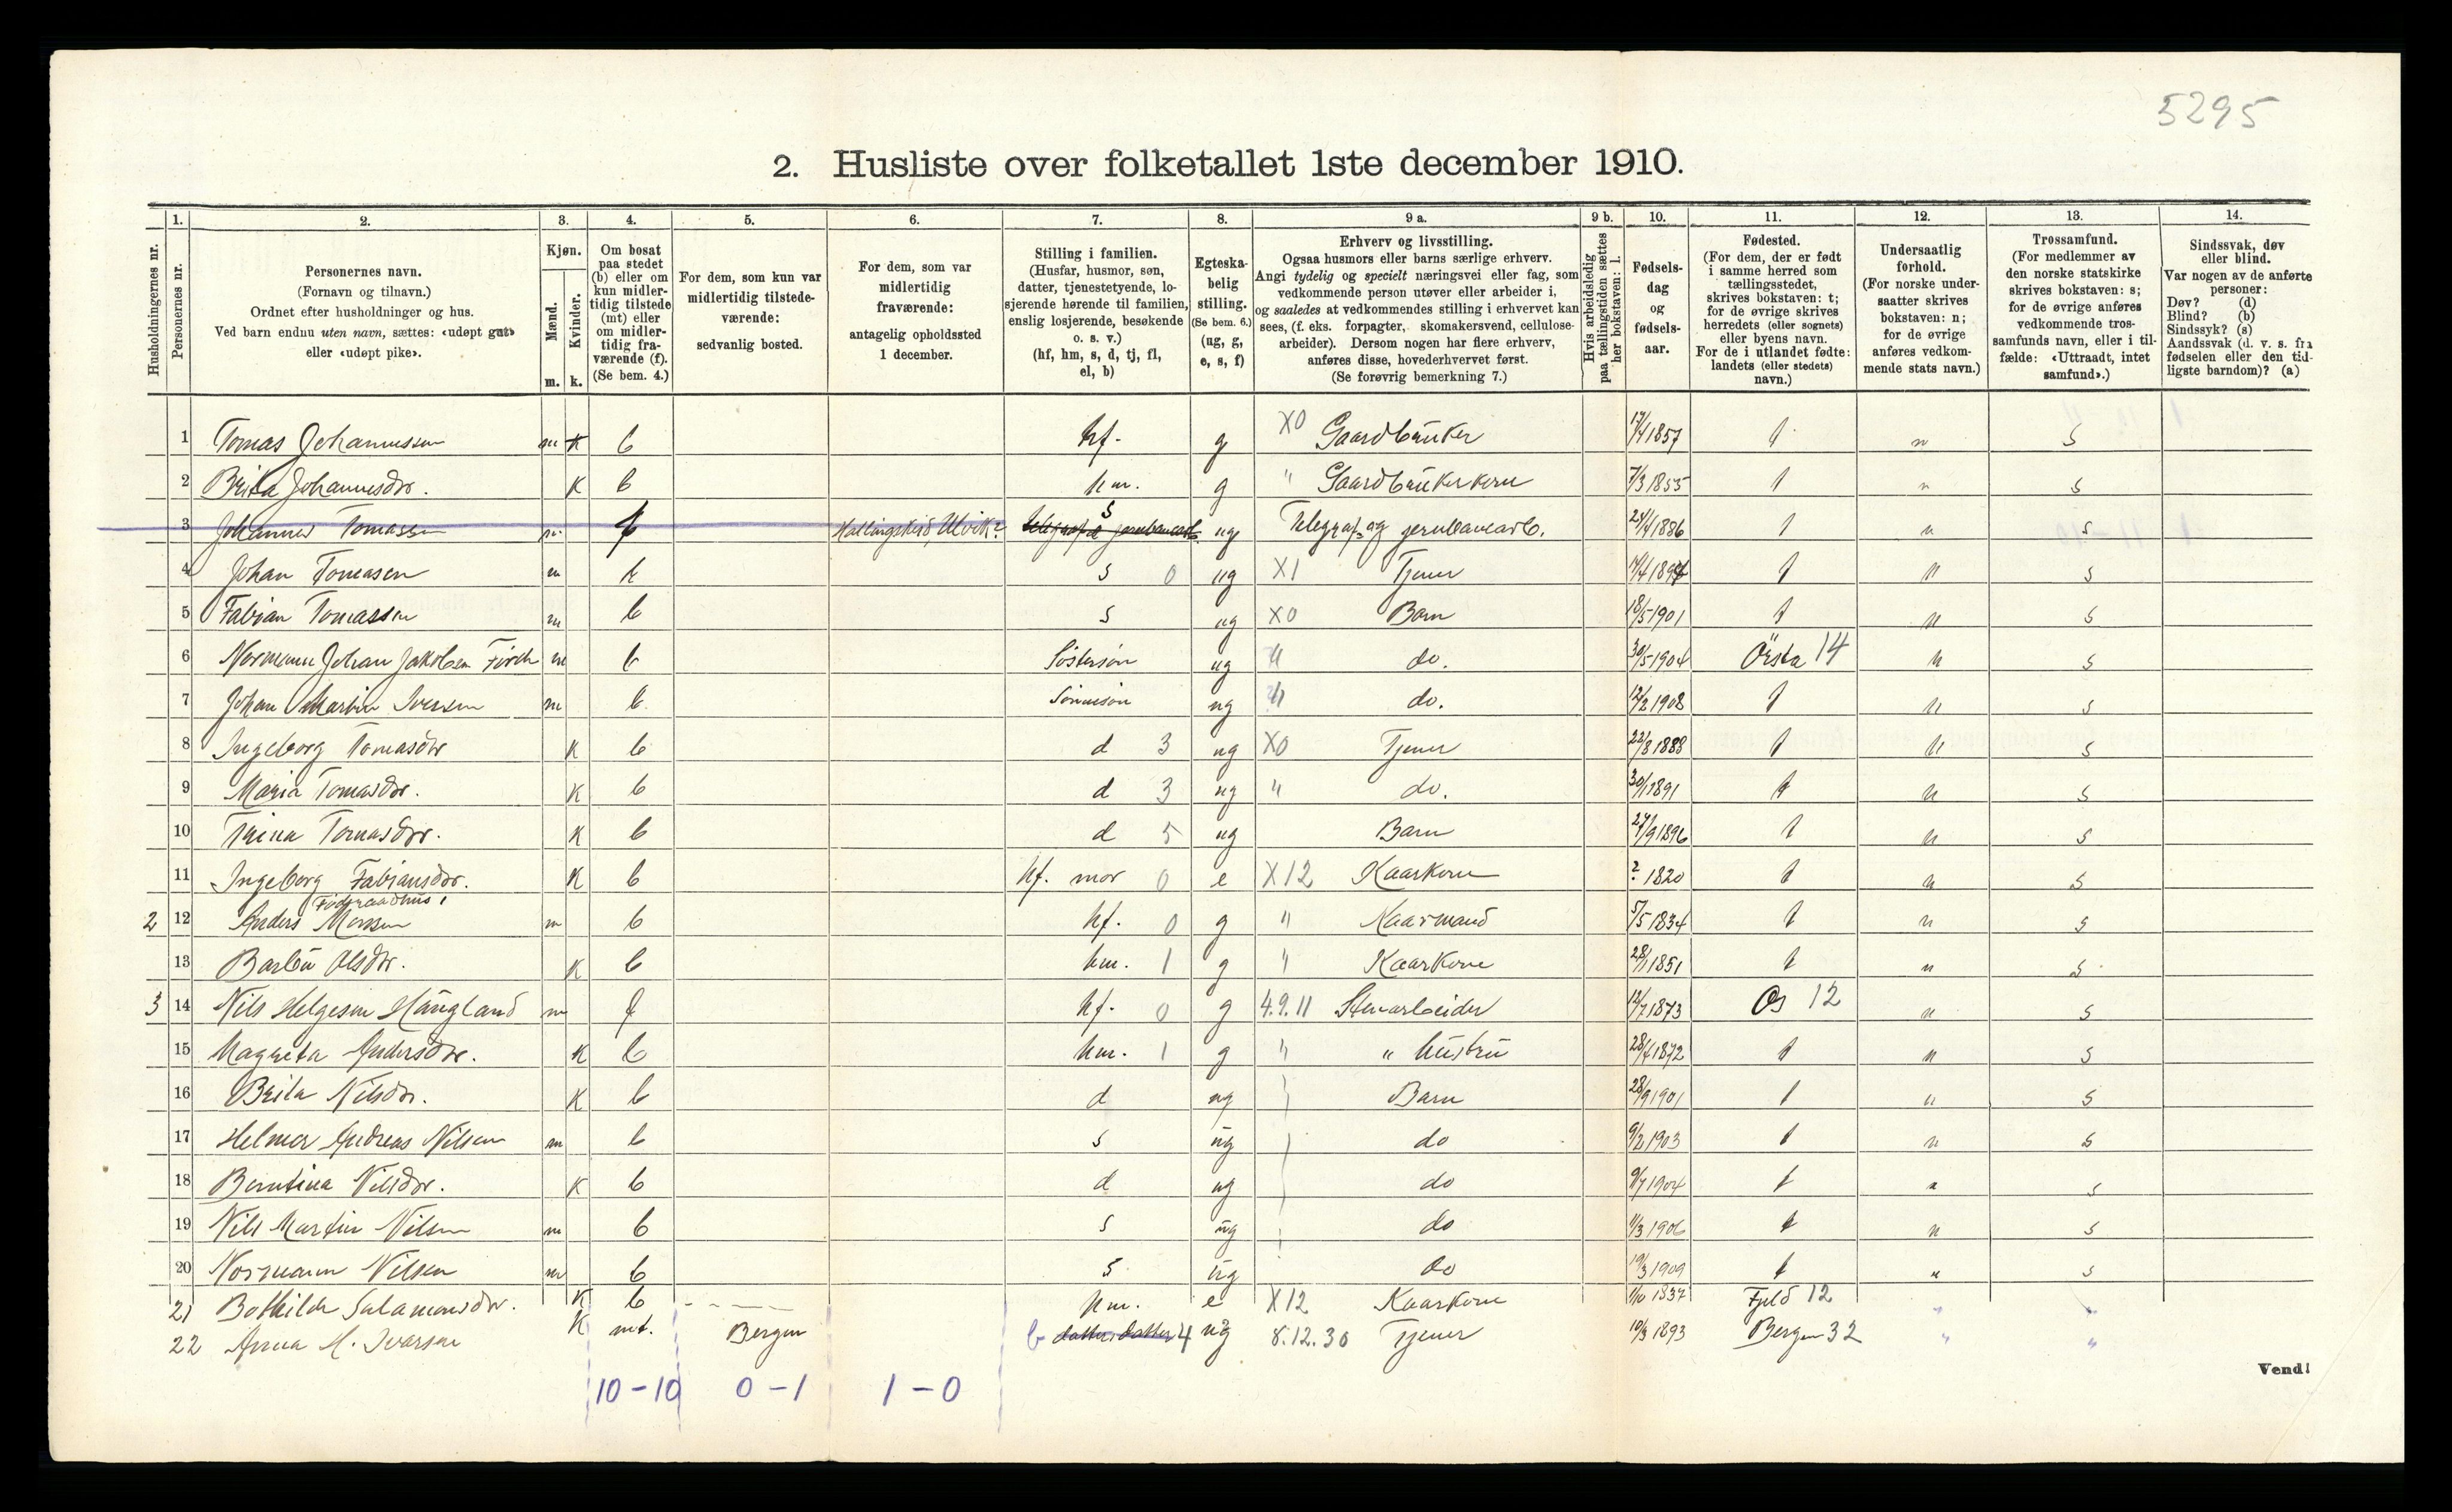 5295
2. Husliste over folketallet 1ste december 1910.
Husholdningernes nr.
1. Personernes nr.
2. Personernes navn. (Fornavn og tilnavn.) Ordnet efter husholdninger og hus. Ved barn endnu uten navn, sættes: «udøpt gut» eller «udøpt pike».
3. Kjøn. Mænd. Kvinder. m. k.
4. Om bosat paa stedet (b) eller om kun midlertidig tilstede (mt) eller om midlertidig fraværende (f). (Se bem. 4.)
5. For dem, som kun var midlertidig tilstedeværende: sedvanlig bosted.
6. For dem, som var midlertidig fraværende: antagelig opholdssted 1 december.
7. Stilling i familien. (Husfar, husmor, søn, datter, tjenestetyende, losjerende hørende til familien, enslig losjerende, besøkende o. s. v.) (hf, hm, s, d, tj, fl, el, b)
8. Egteskabelig stilling. (Se bem. 6.) (ug, g, e, s, f)
9 a. Erhverv og livsstilling. Ogsaa husmors eller barns særlige erhverv. Angi tydelig og specielt næringsvei eller fag, som vedkommende person utøver eller arbeider i, og saaledes at vedkommendes stilling i erhvervet kan sees, (f. eks. forpagter, skomakersvend, cellulosearbeider). Dersom nogen har flere erhverv, anføres disse, hovederhvervet først. (Se forøvrig bemerkning 7.)
9 b. Hvis arbeidsledig paa tællingstiden sættes her bokstaven: l.
10. Fødselsdag og fødselsaar.
11. Fødested. (For dem, der er født i samme herred som tællingsstedet, skrives bokstaven: t; for de øvrige skrives herredets (eller sognets) eller byens navn. For de i utlandet fødte: landets (eller stedets) navn.)
12. Undersaatlig forhold. (For norske undersaatter skrives bokstaven: n; for de øvrige anføres vedkommende stats navn.)
13. Trossamfund. (For medlemmer av den norske statskirke skrives bokstaven: s; for de øvrige anføres vedkommende trossamfunds navn, eller i tilfælde: «Uttraadt, intet samfund».)
14. Sindssvak, døv eller blind. Var nogen av de anførte personer: Døv? (d) Blind? (b) Sindssyk? (s) Aandssvak (d. v. s. fra fødselen eller den tidligste barndom)? (a)
1 Tomas Johannessen m k b hf. g X0 Gaardbruker 17/4 1857 t n s
2 Brita Johannesdr. K b hm. g " Gaardbrukerkone 7/3 1855 t n s
3 Johannes Tomassen m f Hallingskeid, Ulvik? s ug Telegraf og jernbanearb. 1886 t n s
4 Johan Tomasen m b s 0 ug X1 Tjener t n s
5 Fabian Tomassen m b s ug X0 Barn 18/5 1901 t n s
6 Normann Johan Jakobsen m b Søstersøn ug " do. 30/5 1904 Ørsta 14 n s
7 Johan Martin Iversen m b Sønnesøn ug " do. 12/2 1908 t n s
8 Ingeborg Tomasdr K b d 3 ug X0 Tjener 22/8 1888 t n s
9 Maria Tomasdr. K b d 3 ug " do. 30/1 1891 t n s
10 Trina Tomasdr. K b d 5 ug Barn 27/9 1896 t n s
11 Ingeborg Fabiansdr. K b hf. mor 0 e X12 Kaarkone ? 1820 t n s
Føderaadhus
2 12 Anders Monsen m b hf. 0 g " Kaarmand 5/5 1834 t n s
13 Barbu Olsdr. K b hm. 1 g " Kaarkone 28/1 1851 t n s
3 14 Nils Helgesen Haugland m f hf. 0 g 4.9.11 Stenarbeider 12/7 1873 Os 12 n s
15 Magreta Andersdr. K b hm. 1 g " " hustru 28/4 1872 t n s
16 Brita Nilsdr. K b d ug Barn 28/9 1901 t n s
17 Helmer Andreas Nilsen m b s ug do 9/2 1903 t n s
18 Berntina Nilsdr. K b d ug do 9/7 1904 t n s
19 Nils Martin Nilsen m b s ug do 11/3 1906 t n s
20 Normann Nilsen m b s ug do 19/3 1909 t n s
21 Bothilde Salamonsdr. K b hm. e X12 Kaarkone 1837 Fjeld 12 " "
22 Anna M. Ivarsen K mt. Bergen b datters datter 4 ug 8.12.30 Tjener 10/3 1893 Bergen 32 " "
Vend!
10-10 0-1 1-0